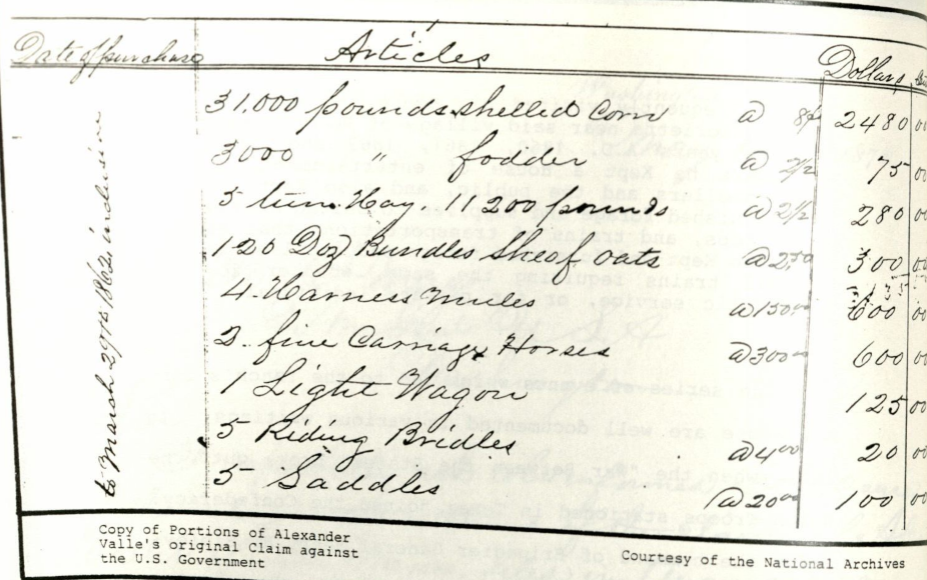 Date of purchase Articles Dollars
31.000 pounds shelled Corn @ 8¢ 2480 00
3000 " fodder @ 2½ 75 00
5 tuns Hay. 11.200 pounds @ 2½ 280 00
120 Doz Bundles Sheof oats @ 2,50 300 00
4. Harness Mules @ 150 00 600 00
2. fine Carriage Horses @ 300 00 600 00
1 Light Wagon 125 00
5 Riding Bridles @ 4 00 20 00
5 Saddles @ 20 00 100 00
to March 29th 1862 inclusive
Copy of Portions of Alexander
Valle's original Claim against
the U.S. Government
Courtesy of the National Archives